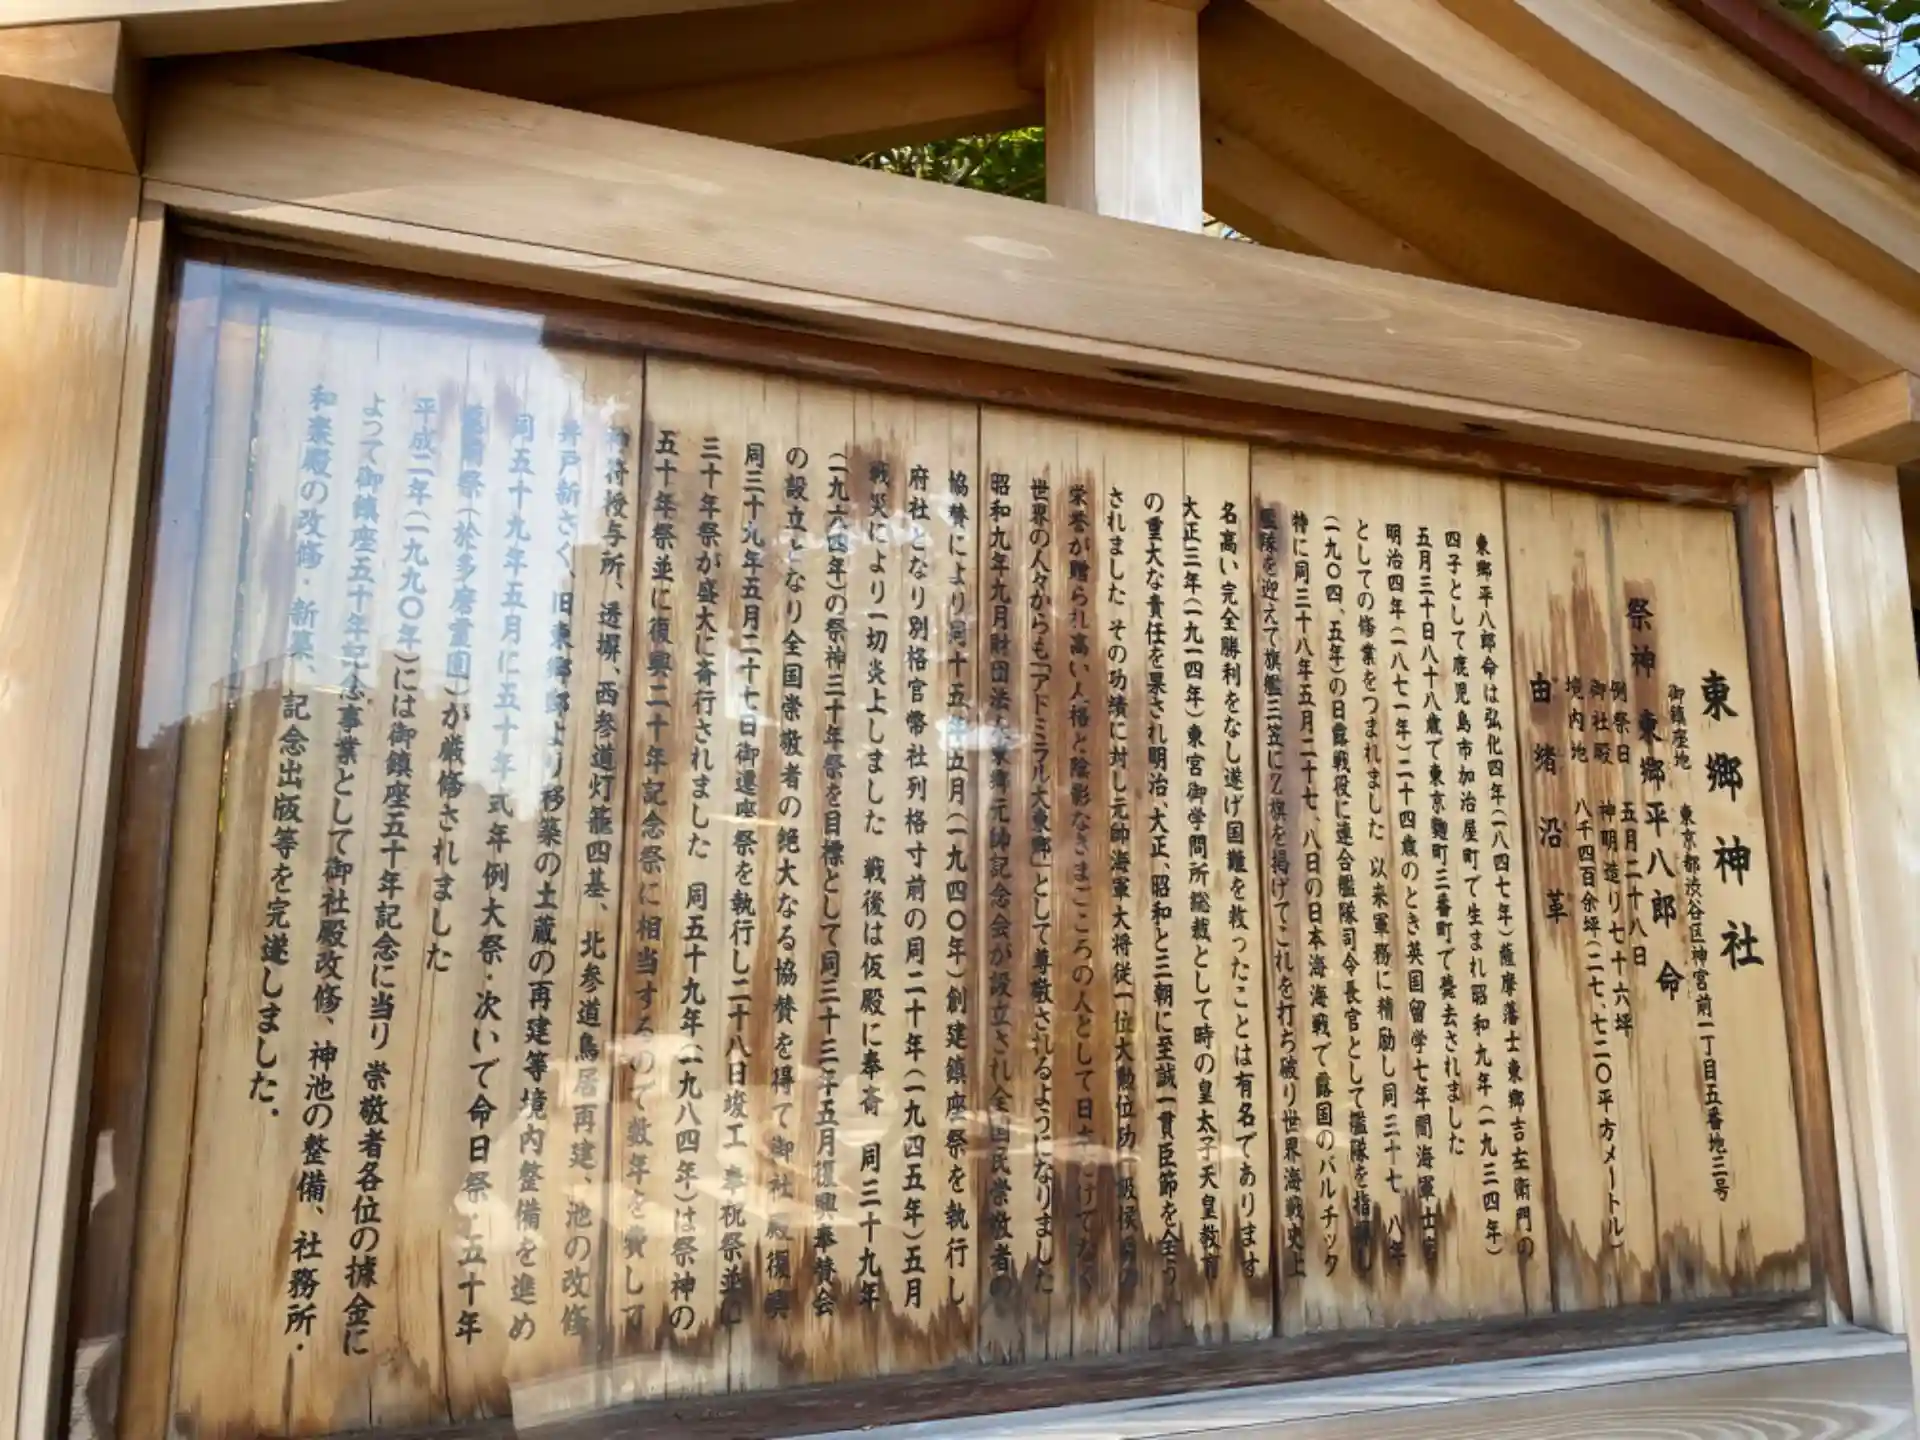 東郷神社
御鎮座地 東京都渋谷区神宮前一丁目五番地三号
祭神 東郷平八郎命
例祭日 五月二十八日
御社殿 神明造り七十六坪
境内地 八千四百余坪(二七、七二〇平方メートル)
由緒沿革
東郷平八郎命は弘化四年(一八四七年)薩摩藩士東郷吉左衛門の
四子として鹿児島市加治屋町で生まれ昭和九年(一九三四年)
五月三十日八十八歳で東京麹町三番町で薨去されました
明治四年(一八七一年)二十四歳のとき英国留学七年間海軍士官
としての修業をつまれました 以来軍務に精励し同三十七、八年
(一九〇四、五年)の日露戦役に連合艦隊司令長官として艦隊を指揮し
特に同三十八年五月二十七、八日の日本海海戦で露国のバルチック
艦隊を迎えて旗艦三笠にZ旗を掲げてこれを打ち破り世界海戦史上
名高い完全勝利をなし遂げ国難を救ったことは有名であります
大正三年(一九一四年)東宮御学問所総裁として時の皇太子天皇教育
の重大な責任を果され明治、大正、昭和と三朝に至誠一貫臣節を全う
されました その功績に対し元帥海軍大将従一位大勲位功一級侯爵の
栄誉が贈られ高い人格と陰影なきまごころの人として日本だけでなく
世界の人々からも「アドミラル大東郷」として尊敬されるようになりました
昭和九年九月財団法人東郷元帥記念会が設立され全国民崇敬者の
協賛により同十五年五月(一九四〇年)創建鎮座祭を執行し
府社となり別格官幣社列格寸前の同二十年(一九四五年)五月
戦災により一切炎上しました 戦後は仮殿に奉斎 同三十九年
(一九六四年)の祭神三十年祭を目標として同三十三年五月復興奉賛会
の設立となり全国崇敬者の絶大なる協賛を得て御社殿復興
同三十九年五月二十七日御遷座祭を執行し二十八日竣工奉祝祭並に
三十年祭が盛大に斎行されました 同五十九年(一九八四年)は祭神の
五十年祭並に復興二十年記念祭に相当するので数年を費して
神符授与所、透塀、西参道灯籠四基、北参道鳥居再建、池の改修
井戸新さく、旧東郷邸より移築の土蔵の再建等境内整備を進め
同五十九年五月に五十年式年例大祭・次いで命日祭・五十年
祭(於多磨霊園)が厳修されました
平成二年(一九九〇年)には御鎮座五十年記念に当り 崇敬者各位の据金に
よって御鎮座五十年記念事業として御社殿改修、神池の整備、社務所・
和楽殿の改修・新築、記念出版等を完遂しました。